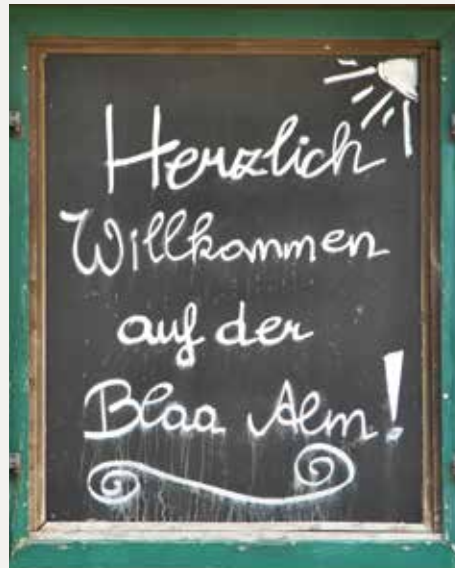 Herzlich
Willkommen
auf der
Blaa Alm!